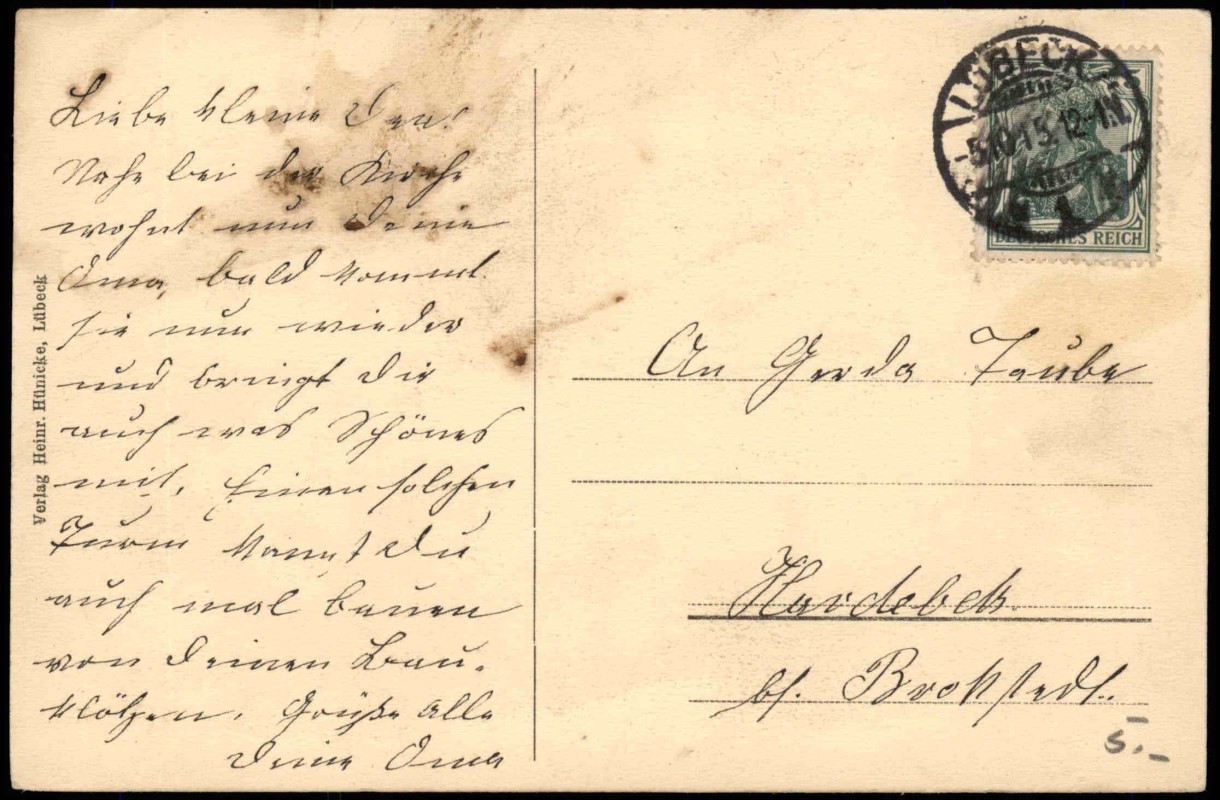 Liebe kleine
Nahe bei der Kirche
wohnt nun Deine
Oma, bald kommt
sie nun wieder
und bringt Dir
auch was Schönes
mit. Einen solchen
Turm kannst Du
auch mal bauen
von Deinen Bau-
klötzen. Grüße Alle
Deine Oma
Verlag Heinr. Hünicke, Lübeck
LÜBECK
5.10.15. 12-1N.
1
DEUTSCHES REICH
An Gerda Taube
Hardebek
bf. Brokstedt.
5.-